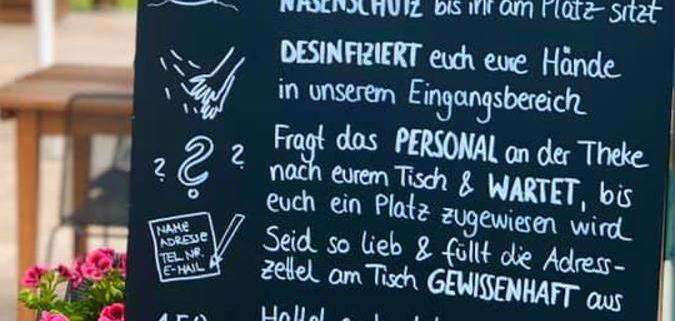 NASENSCHUTZ bis ihr am Platz sitzt
DESINFIZIERT euch eure Hände
in unserem Eingangsbereich
? ? ?
Fragt das PERSONAL an der Theke
nach eurem Tisch & WARTET, bis
euch ein Platz zugewiesen wird
NAME
ADRESSE
TEL NR.
E-MAIL
Seid so lieb & füllt die Adress-
zettel am Tisch GEWISSENHAFT aus